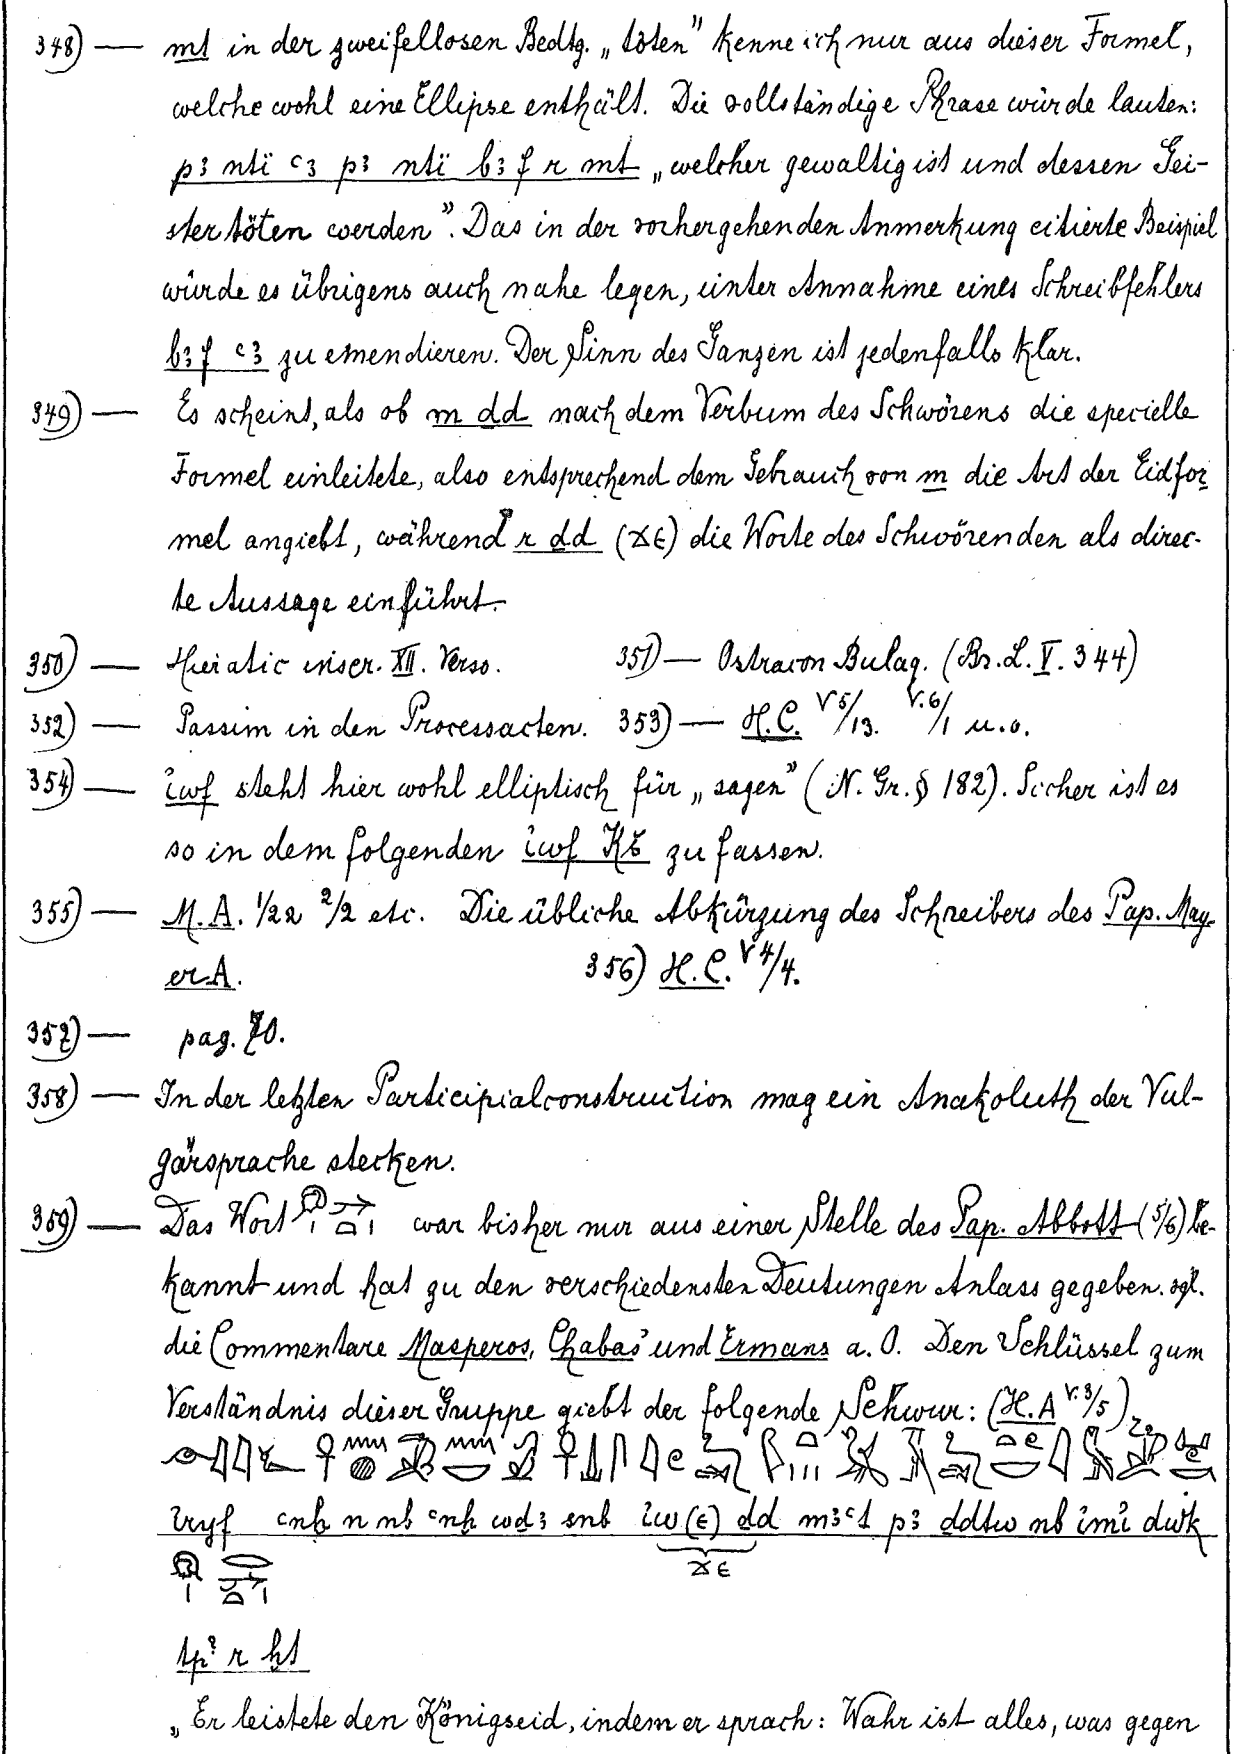 348) — mt in der zweifellosen Bedtg. „töten" kenne ich nur aus dieser Formel,
welche wohl eine Ellipse enthält. Die vollständige Phrase würde lauten:
pꜣ ntï ꜥꜣ pꜣ ntï bꜣf r mt „welcher gewaltig ist und dessen Gei-
ster töten werden". Das in der vorhergehenden Anmerkung citierte Beispiel
würde es übrigens auch nahe legen, unter Annahme eines Schreibfehlers
bꜣf ꜥꜣ zu emendieren. Der Sinn des Ganzen ist jedenfalls klar.
349) — Es scheint, als ob m dd nach dem Verbum des Schwörens die specielle
Formel einleitete, also entsprechend dem Gebrauch von m die Art der Eidfor
mel angiebt, während r dd (ϫⲉ) die Worte des Schwörenden als direc-
te Aussage einführt.
350) — Hieratic inscr. XII. Verso. 351) — Ostracon Bulaq. (Br. L. V. 344)
352) — Passim in den Processacten. 353) — H.C. V 5/13. V. 6/1 u. o.
354) — iwf steht hier wohl elliptisch für „sagen" (N. Gr. § 182). Sicher ist es
so in dem folgenden iwf zu fassen.
355) — M.A. 1/22 2/2 etc. Die übliche Abkürzung des Schreibers des Pap. May-
er A. 356) H.C. V 4/4.
357) — pag. 70.
358) — In der letzten Participialconstruction mag ein Anakoluth der Vul-
gärsprache stecken.
359) — Das Wort war bisher nur aus einer Stelle des Pap. Abbott (5/6) be-
kannt und hat zu den verschiedensten Deutungen Anlass gegeben. vgl.
die Commentare Masperos, Chabas' und Ermans a. O. Den Schlüssel zum
Verständnis dieser Gruppe giebt der folgende Schwur: (H.A V. 3/5)
iryf ꜥnḫ n nb ꜥnḫ wdꜣ snb iw (ⲉ) dd mꜣꜥt pꜣ ddtw nb imi dwk
ϫⲉ
tp? r ḫt
„Er leistete den Königseid, indem er sprach: Wahr ist alles, was gegen